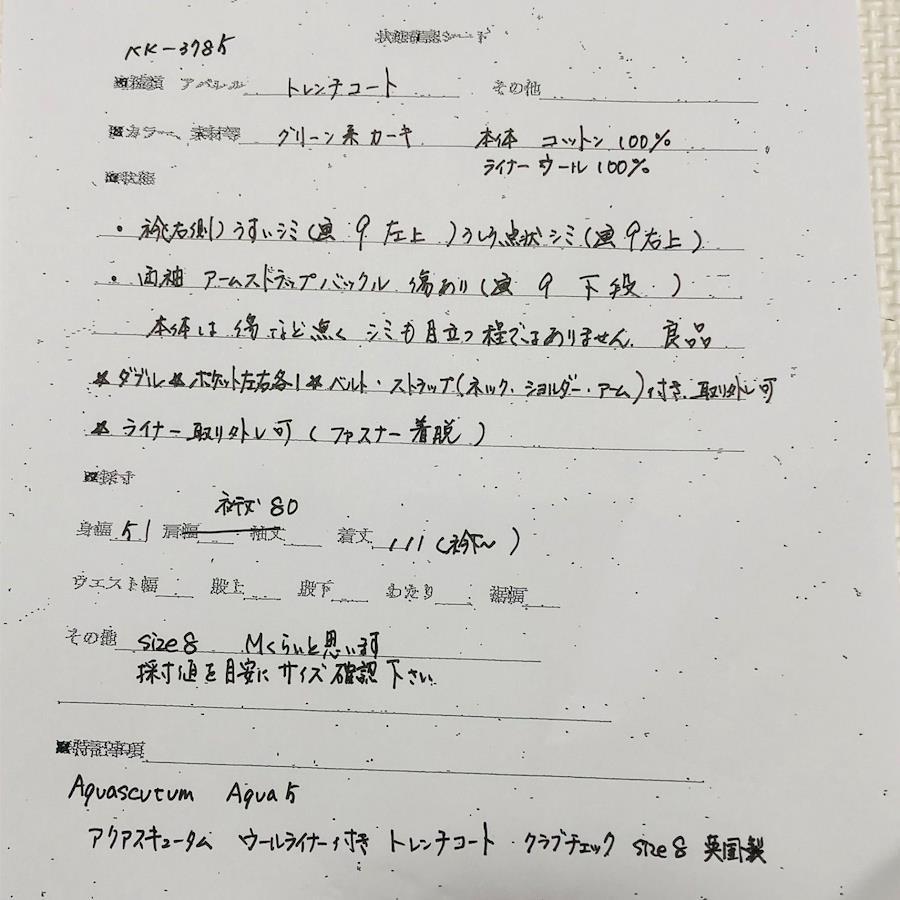 状態確認シート
KK-3785
■種類 アパレル トレンチコート その他
■カラー、素材等 グリーン系カーキ 本体 コットン100%
ライナー ウール100%
■状態
・ 衿(右側)うすいシミ(画 9 左上 )うしろ点状シミ(画 9右上)
・ 両袖 アームストラップバックル 傷あり(画 9 下段 )
本体は傷など無く シミも目立つ程ではありません。 良品
*ダブル*ポケット左右各1*ベルト・ストラップ(ネック・ショルダー・アーム)付き、取り外し可
* ライナー取り外し可 ( ファスナー着脱 )
■採寸
裄丈 80
身幅 51 肩幅 袖丈 着丈 111(衿下~ )
ウエスト幅 股上 股下 わたり 裾幅
その他 size8 Mくらいと思います
採寸値を目安にサイズ確認下さい
■特記事項
Aquascutum Aqua5
アクアスキュータム ウールライナー付き トレンチコート・クラブチェック size8 英国製